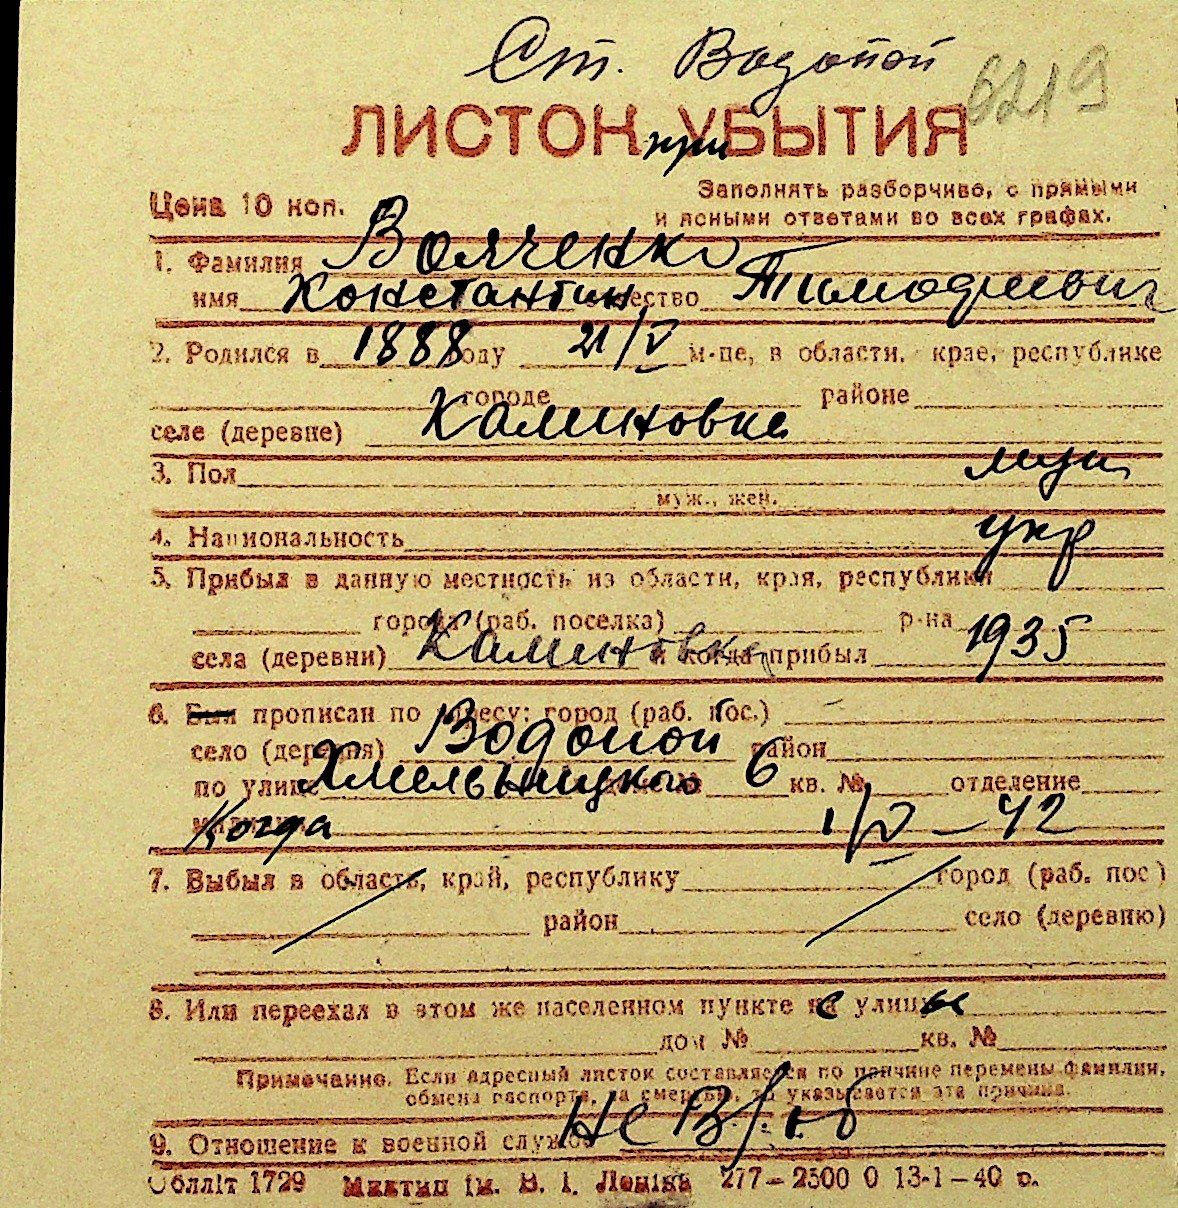 Ст. Водопой
6219
ЛИСТОК при УБЫТИЯ
Цена 10 коп.
Заполнять разборчиво, с прямыми
и ясными ответами во всех графах.
1. Фамилия Волченко
имя Константин отчество Тимофеевич
2. Родился в 1888 году 21/V м-це, в области, крае, республике
городе районе
селе (деревне) Калиновка
3. Пол муж
муж., жен.
4. Национальность укр
5. Прибыл в данную местность из области, края, республики
города (раб. поселка) р-на
села (деревни) Калиновка и когда прибыл 1935
6. Был прописан по адресу: город (раб. пос.)
село (деревня) Водопой район
по улице Хмельницкого 6 кв. № отделение
Когда 1/V - 42
7. Выбыл в область, край, республику город (раб. пос.)
район село (деревню)
8. Или переехал в этом же населенном пункте с улицы
дом № кв. №
Примечание. Если адресный листок составляется по причине перемены фамилии,
обмена паспорта, за смертью, то указывается эта причина.
9. Отношение к военной службе не в/об
Облліт 1729 ім. В. І. Леніна 277-2500 0 13-1-40 р.